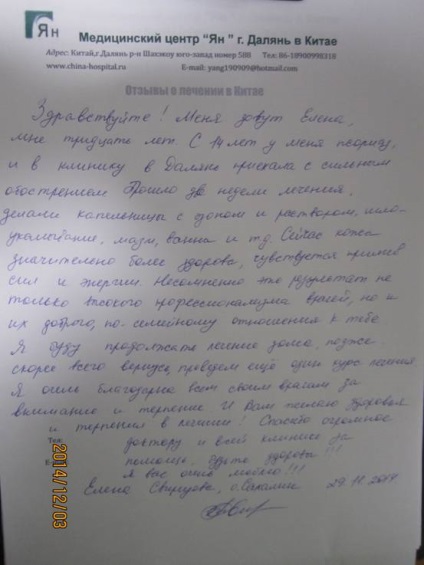 Ян
Медицинский центр "Ян" г. Далянь в Китае
Адрес: Китай, г.Далянь р-н Шахэкоу юго-запад номер 588 Тел: 86-18900998318
www.china-hospital.ru E-mail: yang190909@hotmail.com
Отзывы о лечении в Китае
Здравствуйте! Меня зовут Елена,
мне тридцать лет. С 14 лет у меня псориаз,
и в клинику в Даляне приехала с сильным
обострением. Прошло две недели лечения,
делали капельницы с и раствором, игло-
укалывание, мази, ванна и т.д. Сейчас кожа
значительно более здорова, чувствуется прилив
сил и энергии. Несомненно это результат не
только высокого профессионализма врачей, но и
их доброго, по-семейному отношения к тебе.
Я буду продолжать лечение дома, позже
скорее всего вернусь, проведем ещё один курс лечения.
Я очень благодарна всем своим врачам за
внимание и терпение. И Вам желаю здоровья
и терпения в лечении! Спасибо огромное
Тел: доктору и всей клинике за
E- помощь. Будьте здоровы!!!
Я вас очень люблю!!!
Елена о. Сахалин 29.11.2014
2014/12/03